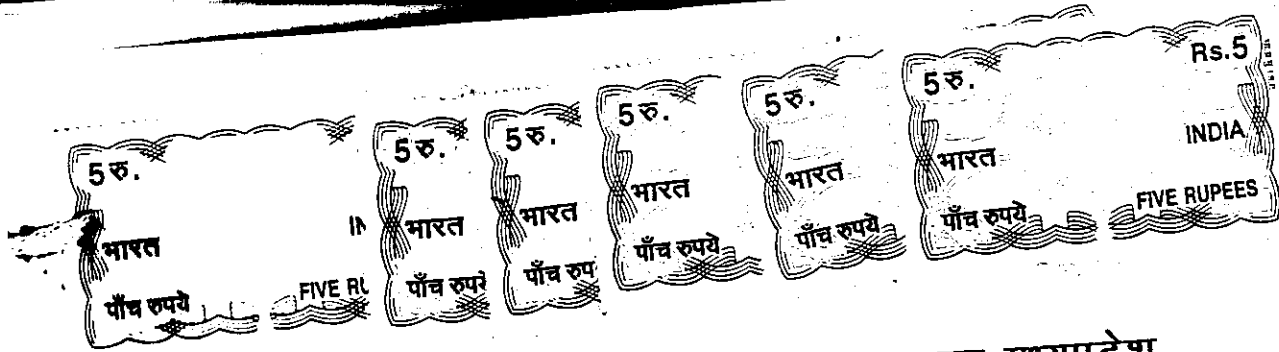 5रु.
भारत
पाँच रुपये
FIVE RU
5रु.
भारत
पाँच रुपये
5रु.
भारत
पाँच रुप
5रु.
भारत
पाँच रुपये
5रु.
भारत
पाँच रुपये
5रु.
Rs.5
भारत
INDIA
पाँच रुपये
FIVE RUPEES
मध्यप्रदेश